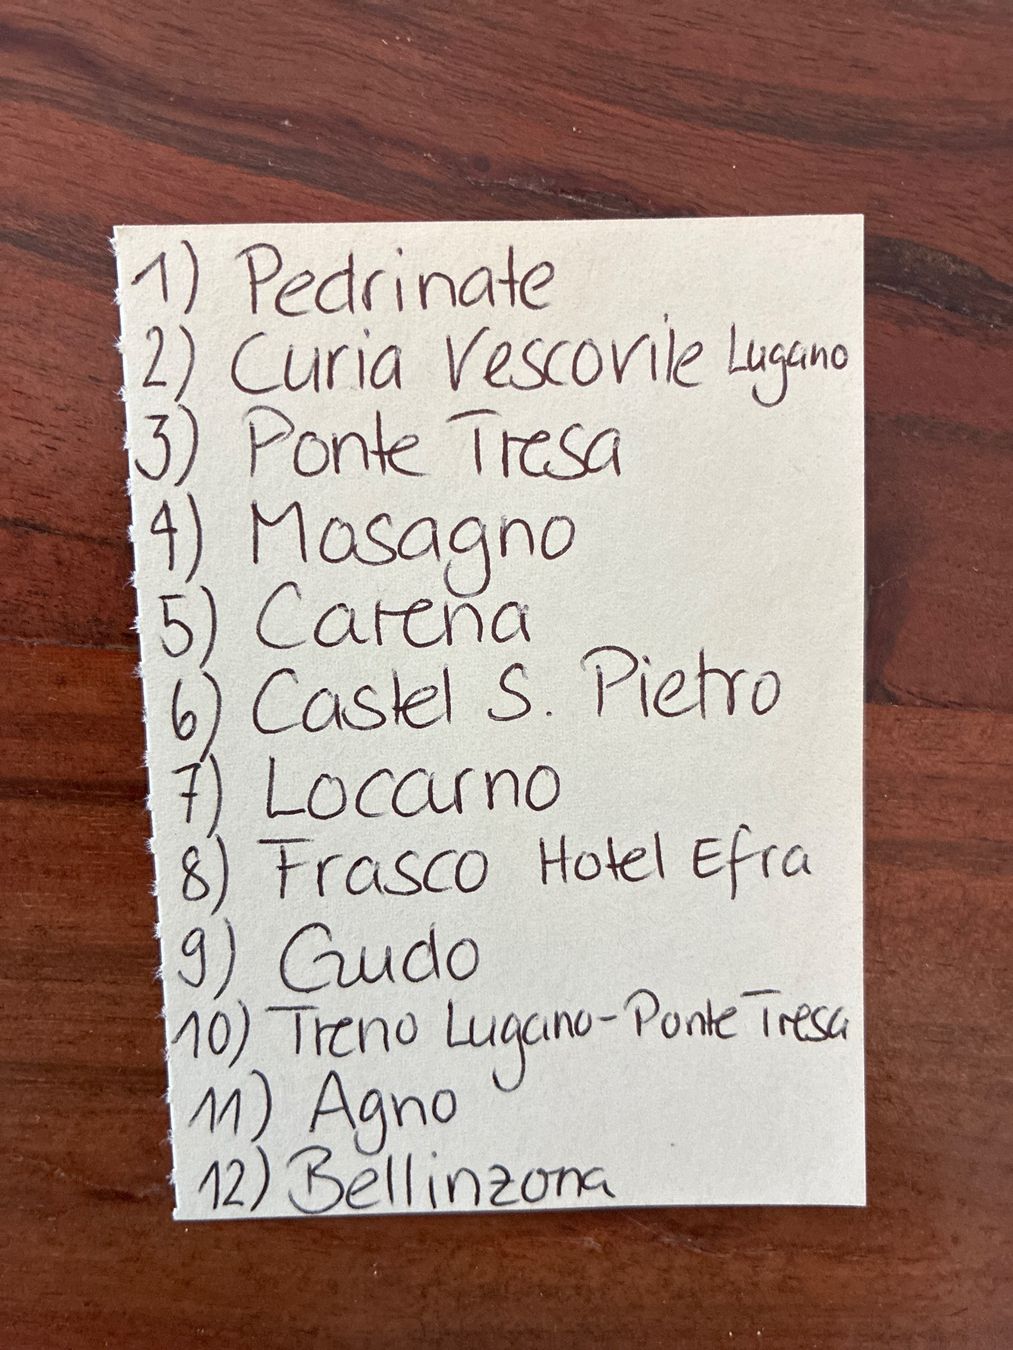 1) Pedrinate
2) Curia Vescovile Lugano
3) Ponte Tresa
4) Mosagno
5) Carena
6) Castel S. Pietro
7) Locarno
8) Frasco Hotel Efra
9) Gudo
10) Treno Lugano-Ponte Tresa
11) Agno
12) Bellinzona